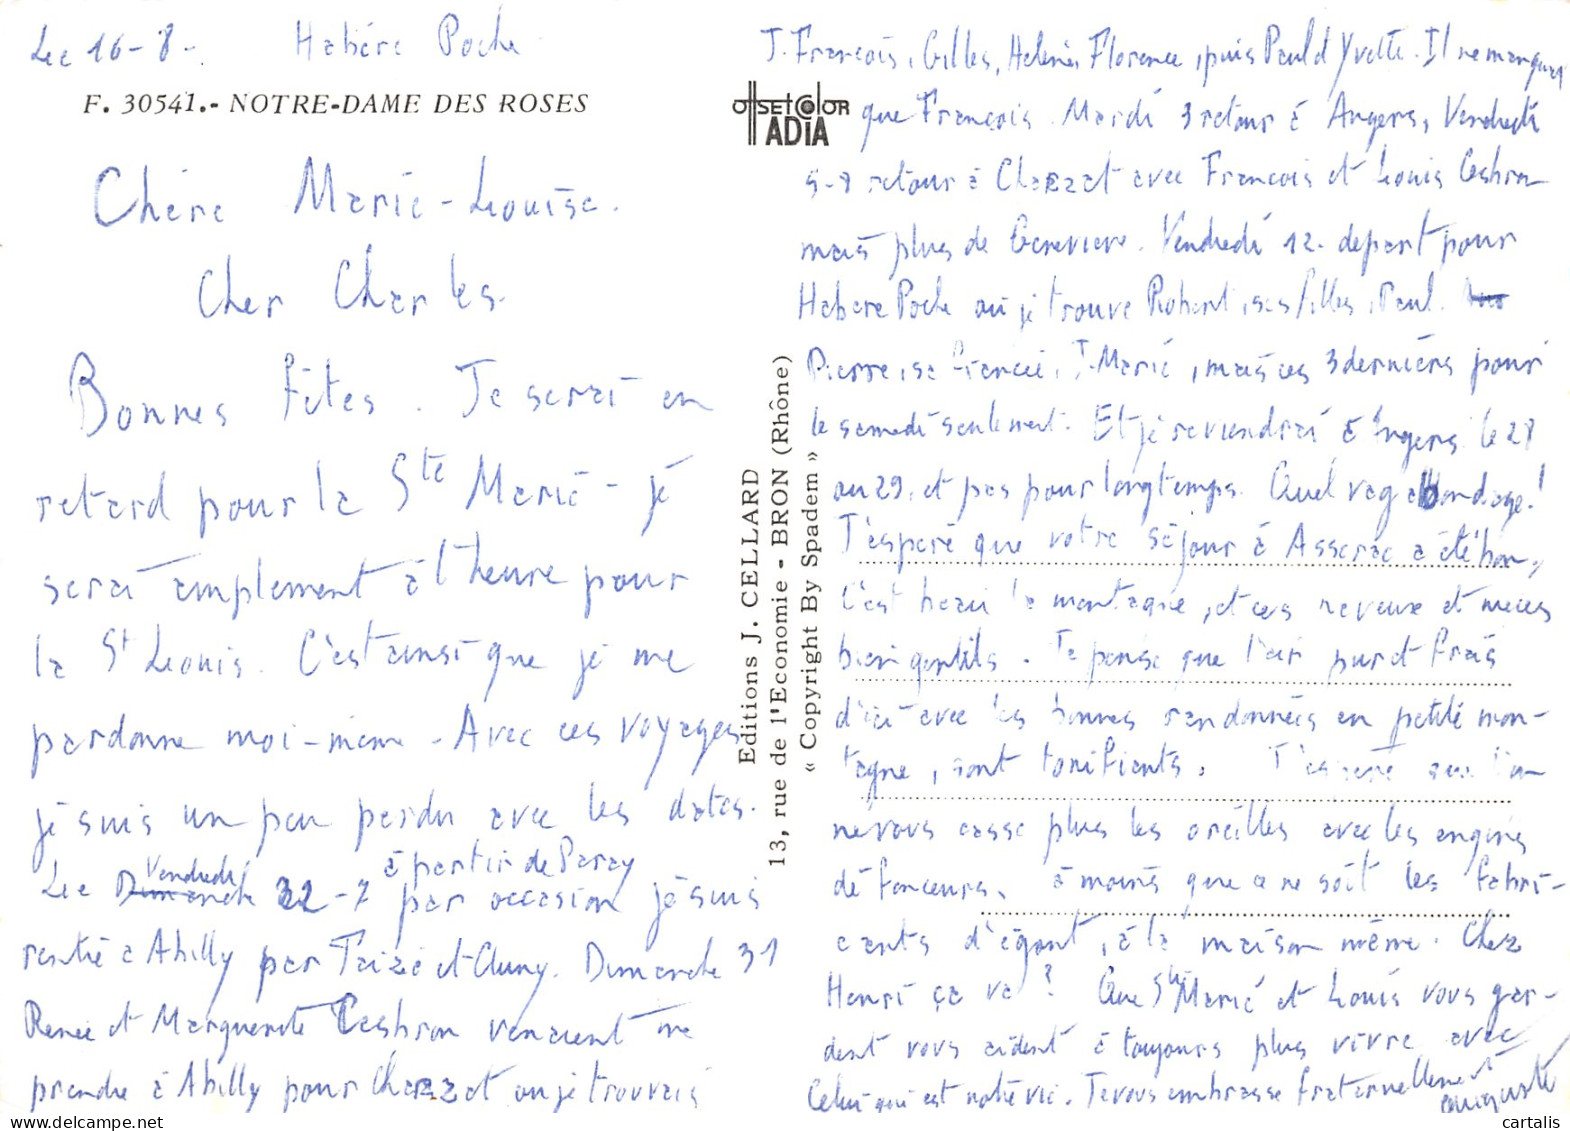 Le 16-8- Habère Poche
F. 30541.- NOTRE-DAME DES ROSES
Chère Marie-Louise.
Cher Charles.
Bonnes fêtes. Je serai en
retard pour la Ste Marie - je
serai amplement à l'heure pour
la St Louis. C'est ainsi que je me
pardonne moi-même. Avec ces voyages
je suis un peu perdu avec les dates.
à partir de Paray
Le Dimanche Vendredi 22-7 par occasion je suis
rentré à Abilly par Taizé et Cluny. Dimanche 31
Renée et Marguerite Cashron venaient me
prendre à Abilly pour Chazzat où je trouvais
offset color
ADIA
Editions J. CELLARD
13, rue de l'Economie - BRON (Rhône)
« Copyright By Spadem »
J. François, Gilles, Hélène, Florence, puis Paul et Yvette. Il ne manquait
que François. Mardi 3 retour à Angers, Vendredi
5-8 retour à Chazzat avec François et Louis Cashron
mais plus de Geneviève. Vendredi 12. départ pour
Habère Poche où je trouve Robert, ses filles, Paul.
Pierre, sa fiancée, J-Marie, mais ces 3 derniers pour
le samedi seulement. Et je reviendrai à Angers le 28
ou 29, et pas pour longtemps. Quel vagabondage!
J'espère que votre séjour à Asserac a été bon,
C'est beau la montagne, et ces neveux et nièces
bien gentils. Je pense que l'air pur et frais
d'ici avec les bonnes randonnées en petite mon-
tagne, sont tonifiants. J'espère que l'on
ne vous casse plus les oreilles avec les engins
défonceurs, à moins que ce ne soit les fabri-
cants d'égout, à la maison même. Chez
Henri ça va? Que Ste Marie et Louis vous gar-
dent vous aident à toujours plus vivre avec
Celui qui est notre vie. Je vous embrasse fraternellement
Auguste
cartalis.com